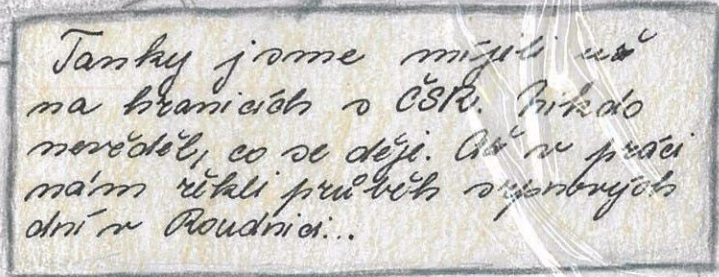 Tanky jsme míjeli už
na hranicích s ČSR. Nikdo
nevěděl, co se děje. Až v práci
nám řekli průběh srpnových
dní v Roudnici...